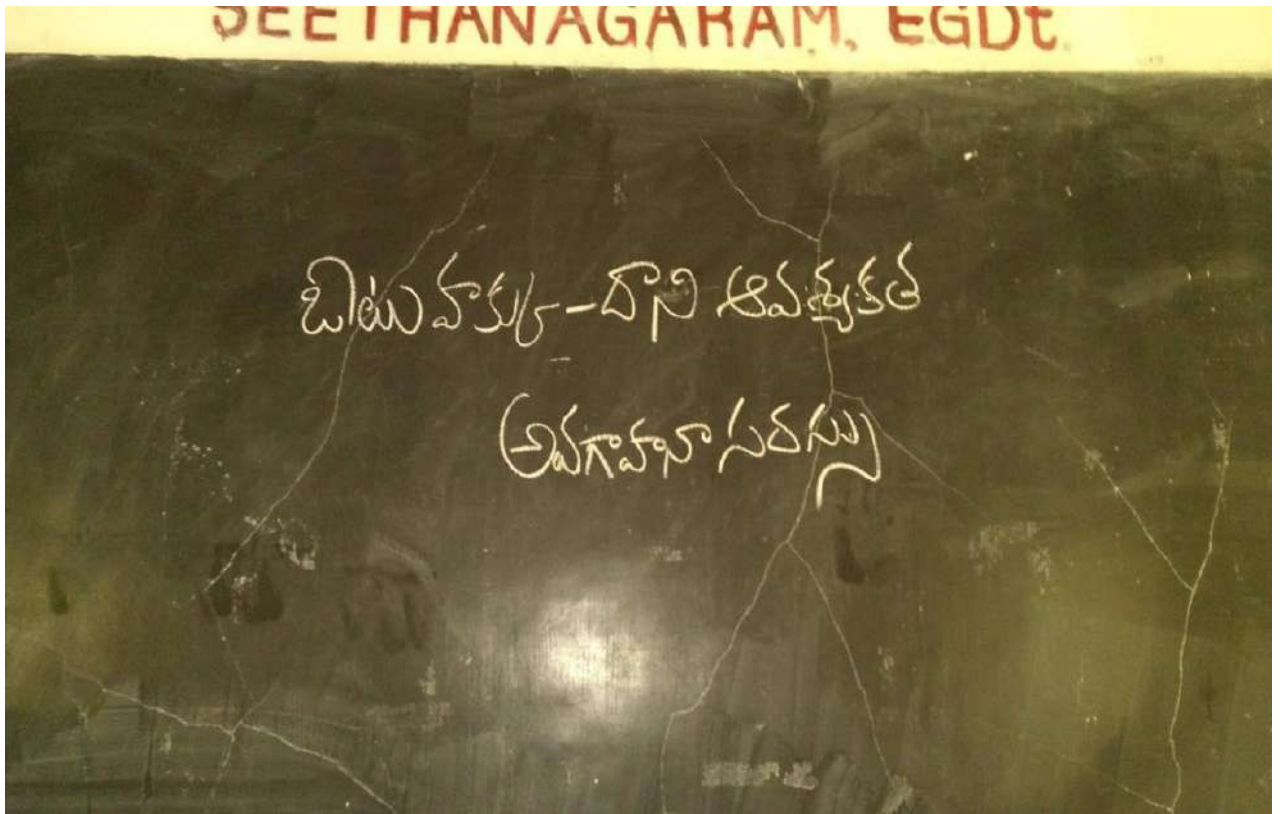 SEETHANAGARAM, EGDt.
ఓటు హక్కు - దాని ఆవశ్యకత
అవగాహనా సదస్సు